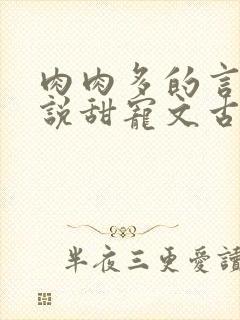 肉肉多的言
說甜寵文古
半夜三更愛讀